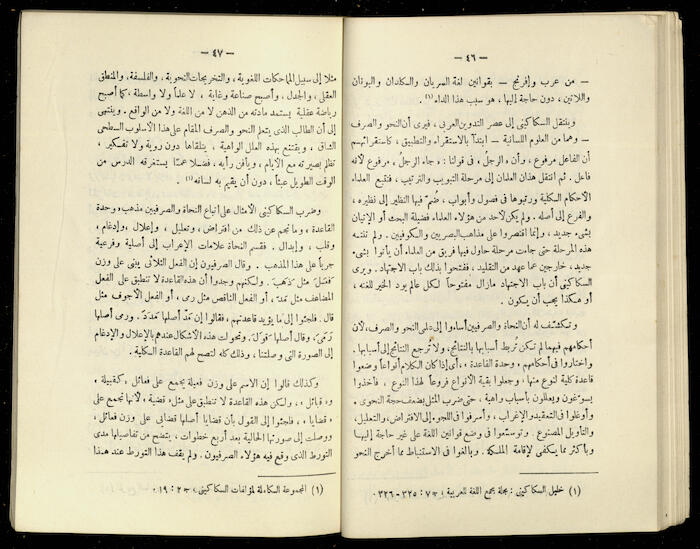 — ٤٦ —
— من عرب وإفرنج — بقوانين لغة السريان والكلدان واليونان
واللاتين ، دون حاجة إليها ، هو سبب هذا الداء . (١)
وينتقل السكاكيني إلى عصر التدوين العربي ، فيرى أن النحو والصرف
— وهما من العلوم اللسانية — ابتدآ بالاستقراء والتطبيق ، كاستقرائهم
أن الفاعل مرفوع ، وأن « الرجل » في قولنا : « جاء الرجل » مرفوع لأنه
فاعل . ثم انتقل هذان العلمان إلى مرحلة التبويب والترتيب ، فتتبع العلماء
الأحكام السكلية ورتبوها في فصول وأبواب ، ضُمّ فيها النظير إلى نظيره ،
والفرع إلى أصله . ولم يكن لأحد من هؤلاء العلماء فضيلة البحث أو الإتيان
بشيء جديد ، وإنما اقتصروا على مذاهب البصريين والكوفيين . ولم تلته
هذه المرحلة حتى جاءت مرحلة حاول فيها فريق من العلماء أن يأتوا بشيء
جديد ، خارجين عما عهد من التقليد ، ففتحوا بذلك باب الاجتهاد . ويرى
السكاكيني أن باب الاجتهاد مازال مفتوحاً لكل عالم يود الخير للغته ،
أو هكذا يجب أن يكون .
وتكشّف له أن النحاة والصرفيين أساءوا إلى علمي النحو والصرف ، لأن
أحكامهم فيهما لم تكن تُربط أسبابها بالنتائج ، ولا تُرجع النتائج إلى أسبابها .
واختاروا في أحكامهم « وحدة القاعدة » ، أي إذا كان الكلام أنواعاً وضعوا
قاعدة كلية لنوع منها ، وجعلوا بقية الأنواع فروعاً لهذا النوع . فأخذوا
يسوّغون ويعللون بأسباب واهية ، حتى ضرب المثل بضعف حجة النحوي ،
وأوغلوا في التعقيد والإغراب ، وأسرفوا في اللجوء إلى الافتراض ، والتعليل ،
والتأويل المصنوع . وتوسّعوا في وضع قوانين اللغة على غير حاجة إليها
وبأكثر مما يكفى لإقامة الملكة . وبالغوا في الاستنباط مما أخرج النحو
(١) خليل السكاكيني : مجلة مجمع اللغة للعربية ، ج ٧ : ٣٢٥ - ٣٢٦ .
— ٤٧ —
مثلا إلى سبيل المماحكات اللغوية ، والتخريجات النحوية ، والفلسفة ، والمنطق
العقلي ، والجدل ، وأصبح صناعة وغاية ، لا علماً ولا واسطة ، كما أصبح
رياضة عقلية يستمد مادته من الذهن لا من اللغة ولا من الواقع . وينتهى
إلى أن الطالب الذى يتعلم النحو والصرف المقام على هذا الأسلوب السطحى
الشاق ، ويقتنع بهذه العلل الواهية ، يتلقاها دون روية ولا تفكير ،
تظلم بصيرته مع الأيام ، ويأفن رأيه ، فضلا عمّا يستغرقه الدرس من
الوقت الطويل عبثاً ، دون أن يقيم به لسانه (١)
وضرب السكاكيني الأمثال على اتباع النحاة والصرفيين مذهب « وحدة
القاعدة » ، وما نجم عن ذلك من افتراض ، وتعليل ، وإعلال ، وإدغام ،
وقلب ، وإبدال . فقسم النحاة علامات الإعراب إلى أصلية وفرعية
جرياً على هذا المذهب . وقال الصرفيون إن الفعل الثلاثى يبنى على وزن
« فَعَلَ » مثل « ذَهَبَ » . ولكنهم وجدوا أن هذه القاعدة لا تنطبق على الفعل
المضاعف مثل « مَدّ » ، أو الفعل الناقص مثل « رمى » ، أو الفعل الأجوف مثل
قال . فلجئوا إلى ما يؤيد قاعدتهم ، فقالوا إن مَدّ أصلها مَدَدَ . ورمى أصلها
رَمَىَ ، وقال أصلها قَوَلَ ، وتحولت هذه الأشكال عندهم بالإعلال والإدغام
إلى الصورة التى وصلتنا ، وذلك كله لتصح لهم القاعدة السكلية .
وكذلك قالوا إن الاسم على وزن فعيلة يجمع على فعائل ، كقبيلة ،
و« قبائل » ، ولكن هذه القاعدة لا تنطبق على مثل « قضية » ، لأنها تجمع على
« قضايا » ، فلجئوا إلى القول بأن قضايا أصلها قضايى على وزن فعائل ،
ووصلت إلى صورتها الحالية بعد أربع خطوات ، يتضح من تفاصيلها مدى
التورط الذى وقع فيه هؤلاء الصرفيون . ولم يقف هذا التورط عند هذا
(١) المجموعة الكاملة لمؤلفات السكاكيني ، ج ٢ : ١٩ .